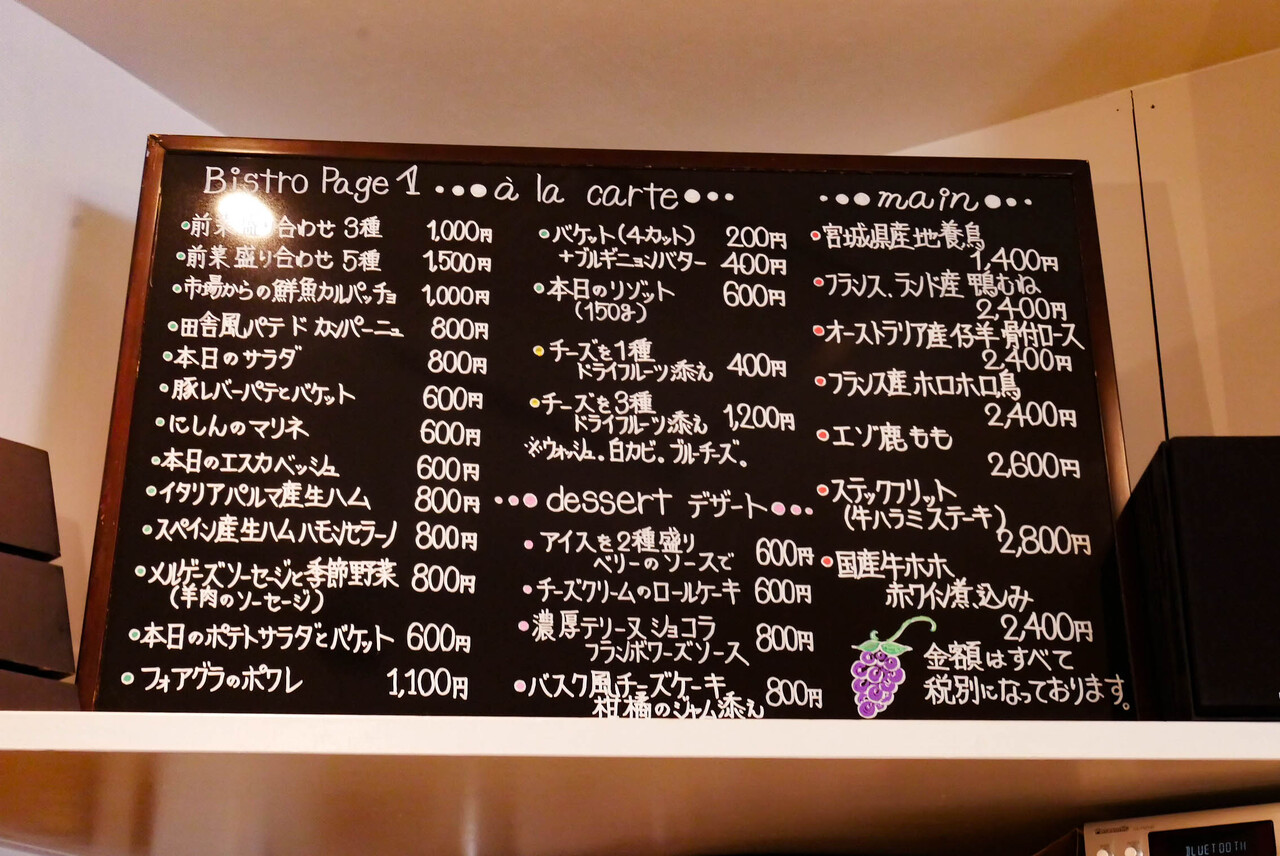 Bistro Page 1 ...●à la carte●...
前菜盛り合わせ 3種 1,000円
前菜盛り合わせ 5種 1,500円
市場からの鮮魚カルパッチョ 1,000円
田舎風パテ ド カンパーニュ 800円
本日のサラダ 800円
豚レバーパテとバケット 600円
にしんのマリネ 600円
本日のエスカベッシュ 600円
イタリアパルマ産生ハム 800円
スペイン産生ハム ハモンセラーノ 800円
メルゲーズソーセージと季節野菜 800円
(羊肉のソーセージ)
本日のポテトサラダとバケット 600円
フォアグラのポワレ 1,100円
バケット(4カット) 200円
+ブルギニョンバター 400円
本日のリゾット 600円
(150g)
チーズを1種
ドライフルーツ添え 400円
チーズを3種
ドライフルーツ添え 1,200円
※ウォッシュ。白カビ。ブルーチーズ。
...●dessert デザート●...
アイスを2種盛り
ベリーのソースで 600円
チーズクリームのロールケーキ 600円
濃厚テリーヌ ショコラ
フランボワーズソース 800円
バスク風チーズケーキ
柑橘のジャム添え 800円
...●main●...
宮城県産地養鳥
1,400円
フランス、ランド産 鴨むね
2,400円
オーストラリア産 仔羊 骨付ロース
2,400円
フランス産 ホロホロ鳥
2,400円
エゾ鹿もも
2,600円
ステックフリット
(牛ハラミステーキ)
2,800円
国産牛ホホ
赤ワイン煮込み
2,400円
金額はすべて
税別になっております。
BLUETOOTH